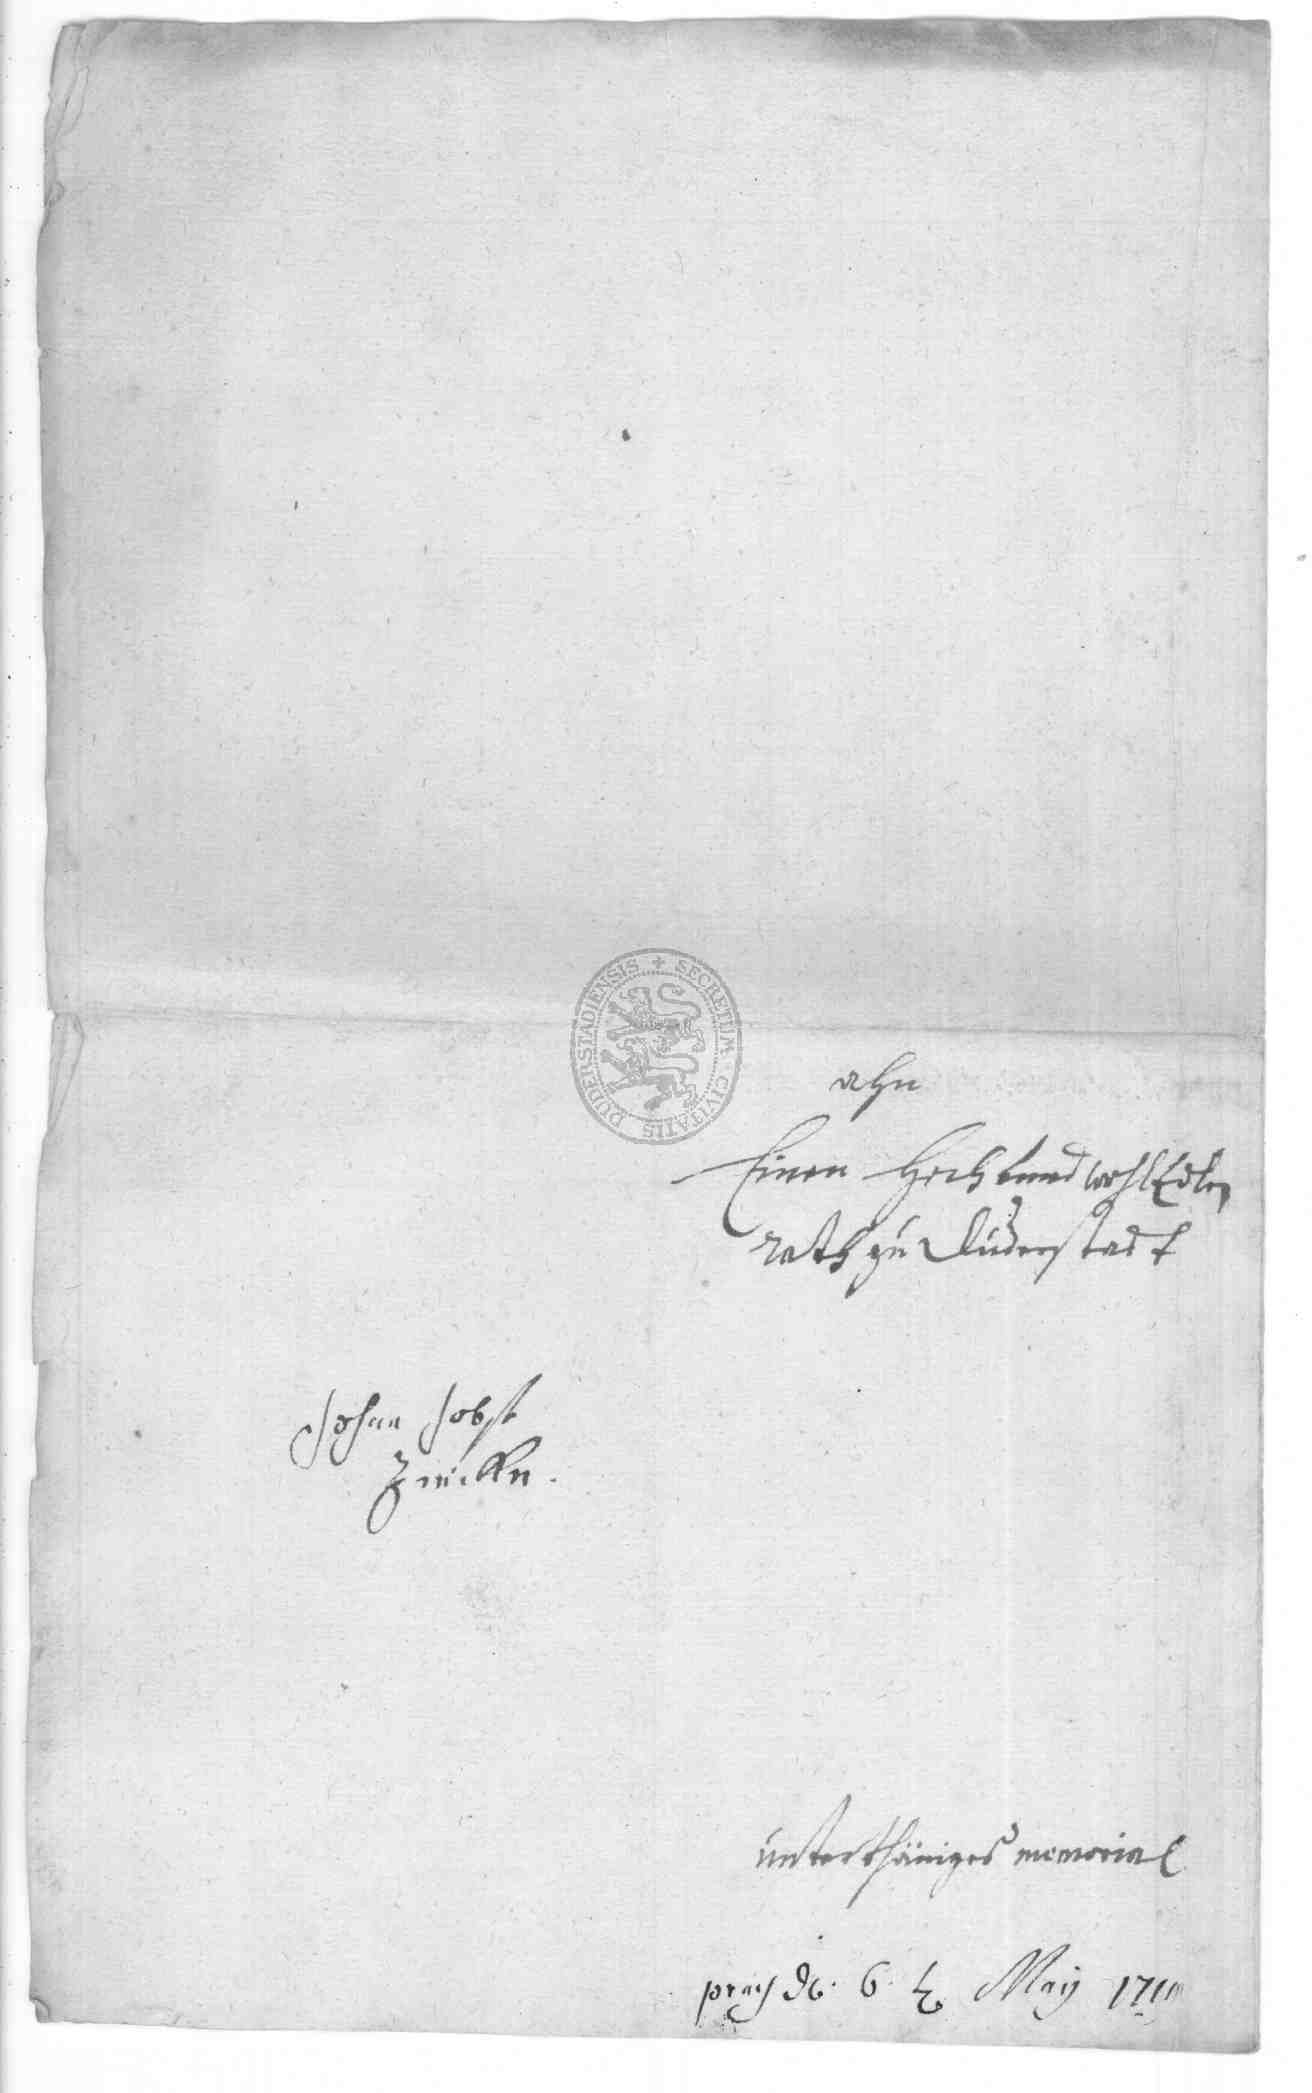 SECRETUM CIVITATIS DUDERSTADIENSIS
ahn
Einen Hoch und wohl Edlen
rath zu Duderstadt
Johan Jobst
unterthäniges memorial
6 May